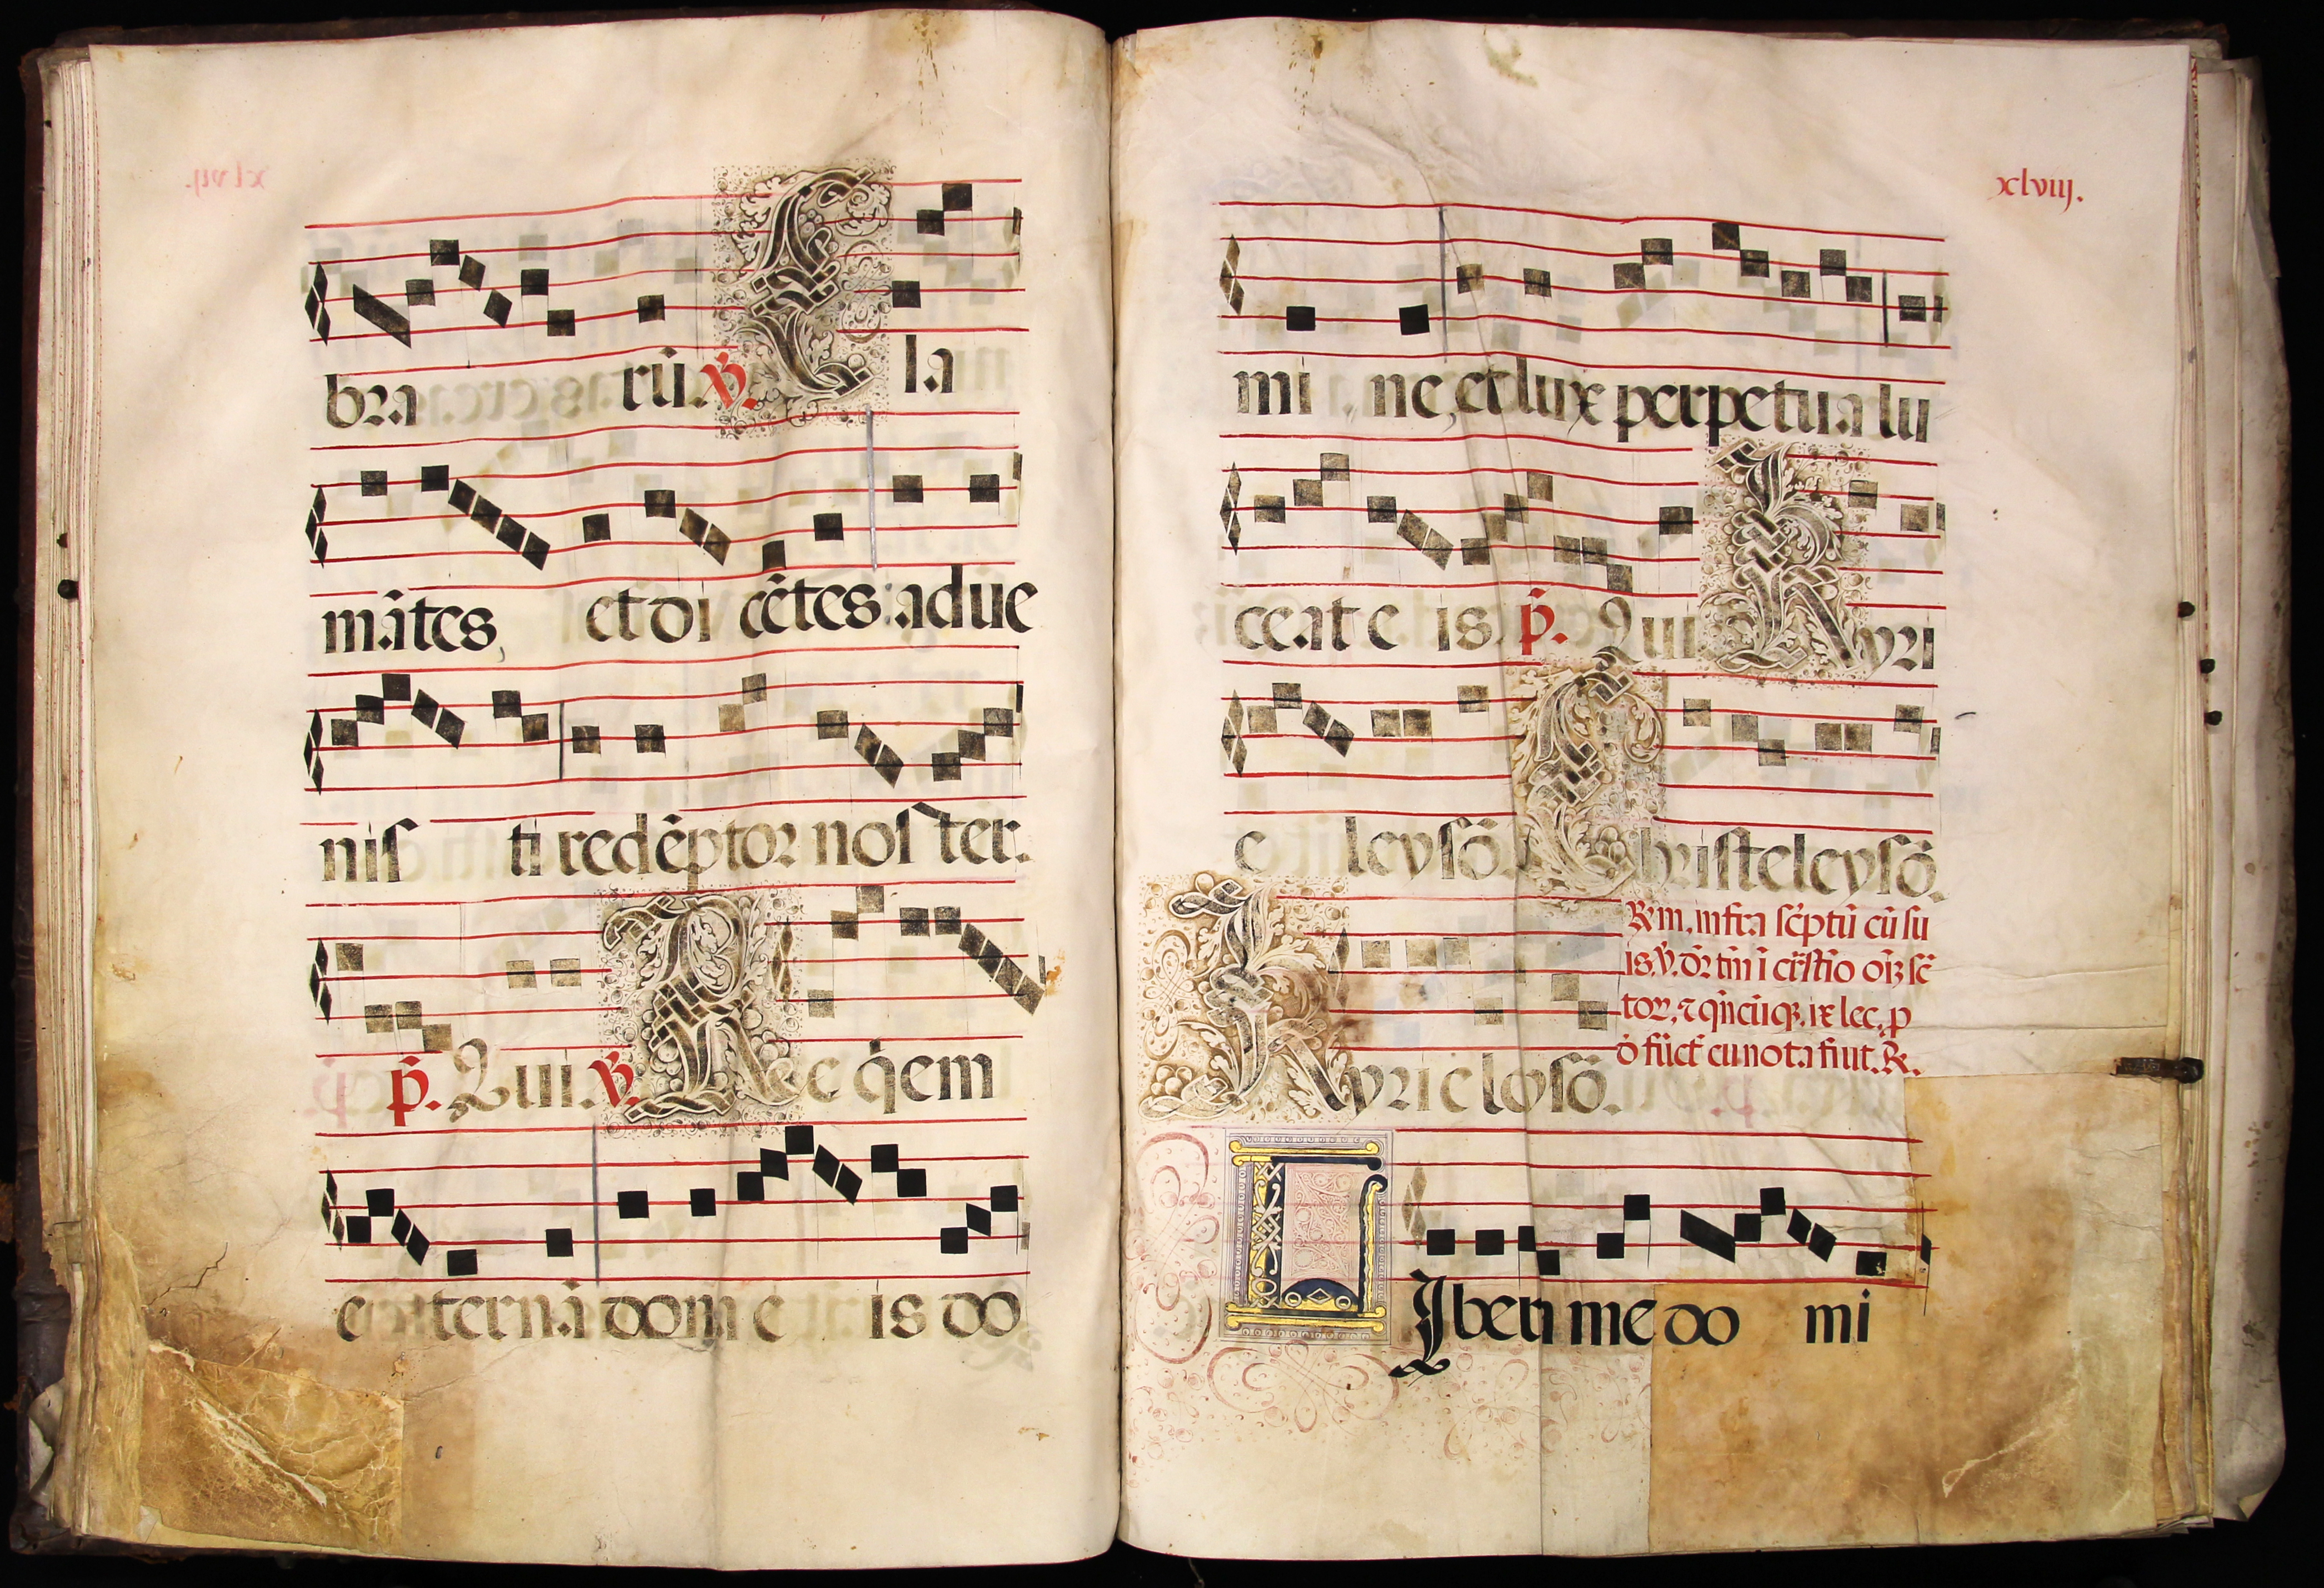 bra rū. ℣. Cla
mātes, et di cētes: adue
nis ti redēptor nos ter.
p̄. Qui. ℣. Re q̇em
e ternā dom e is do
xlviij.
mi ne, et lux perpetua lu
ceat e is. p̄. Qui Kyri
e leysō. Christeleysō.
Kyrieloysō.
℞m, infra sc̄ptū cū su
is. ℣. dr̄ tm̄ i
tor, ⁊ qn̄cūq. ix lec. p
o fūct cu nota fiūt. ℞.
LIbera me do mi